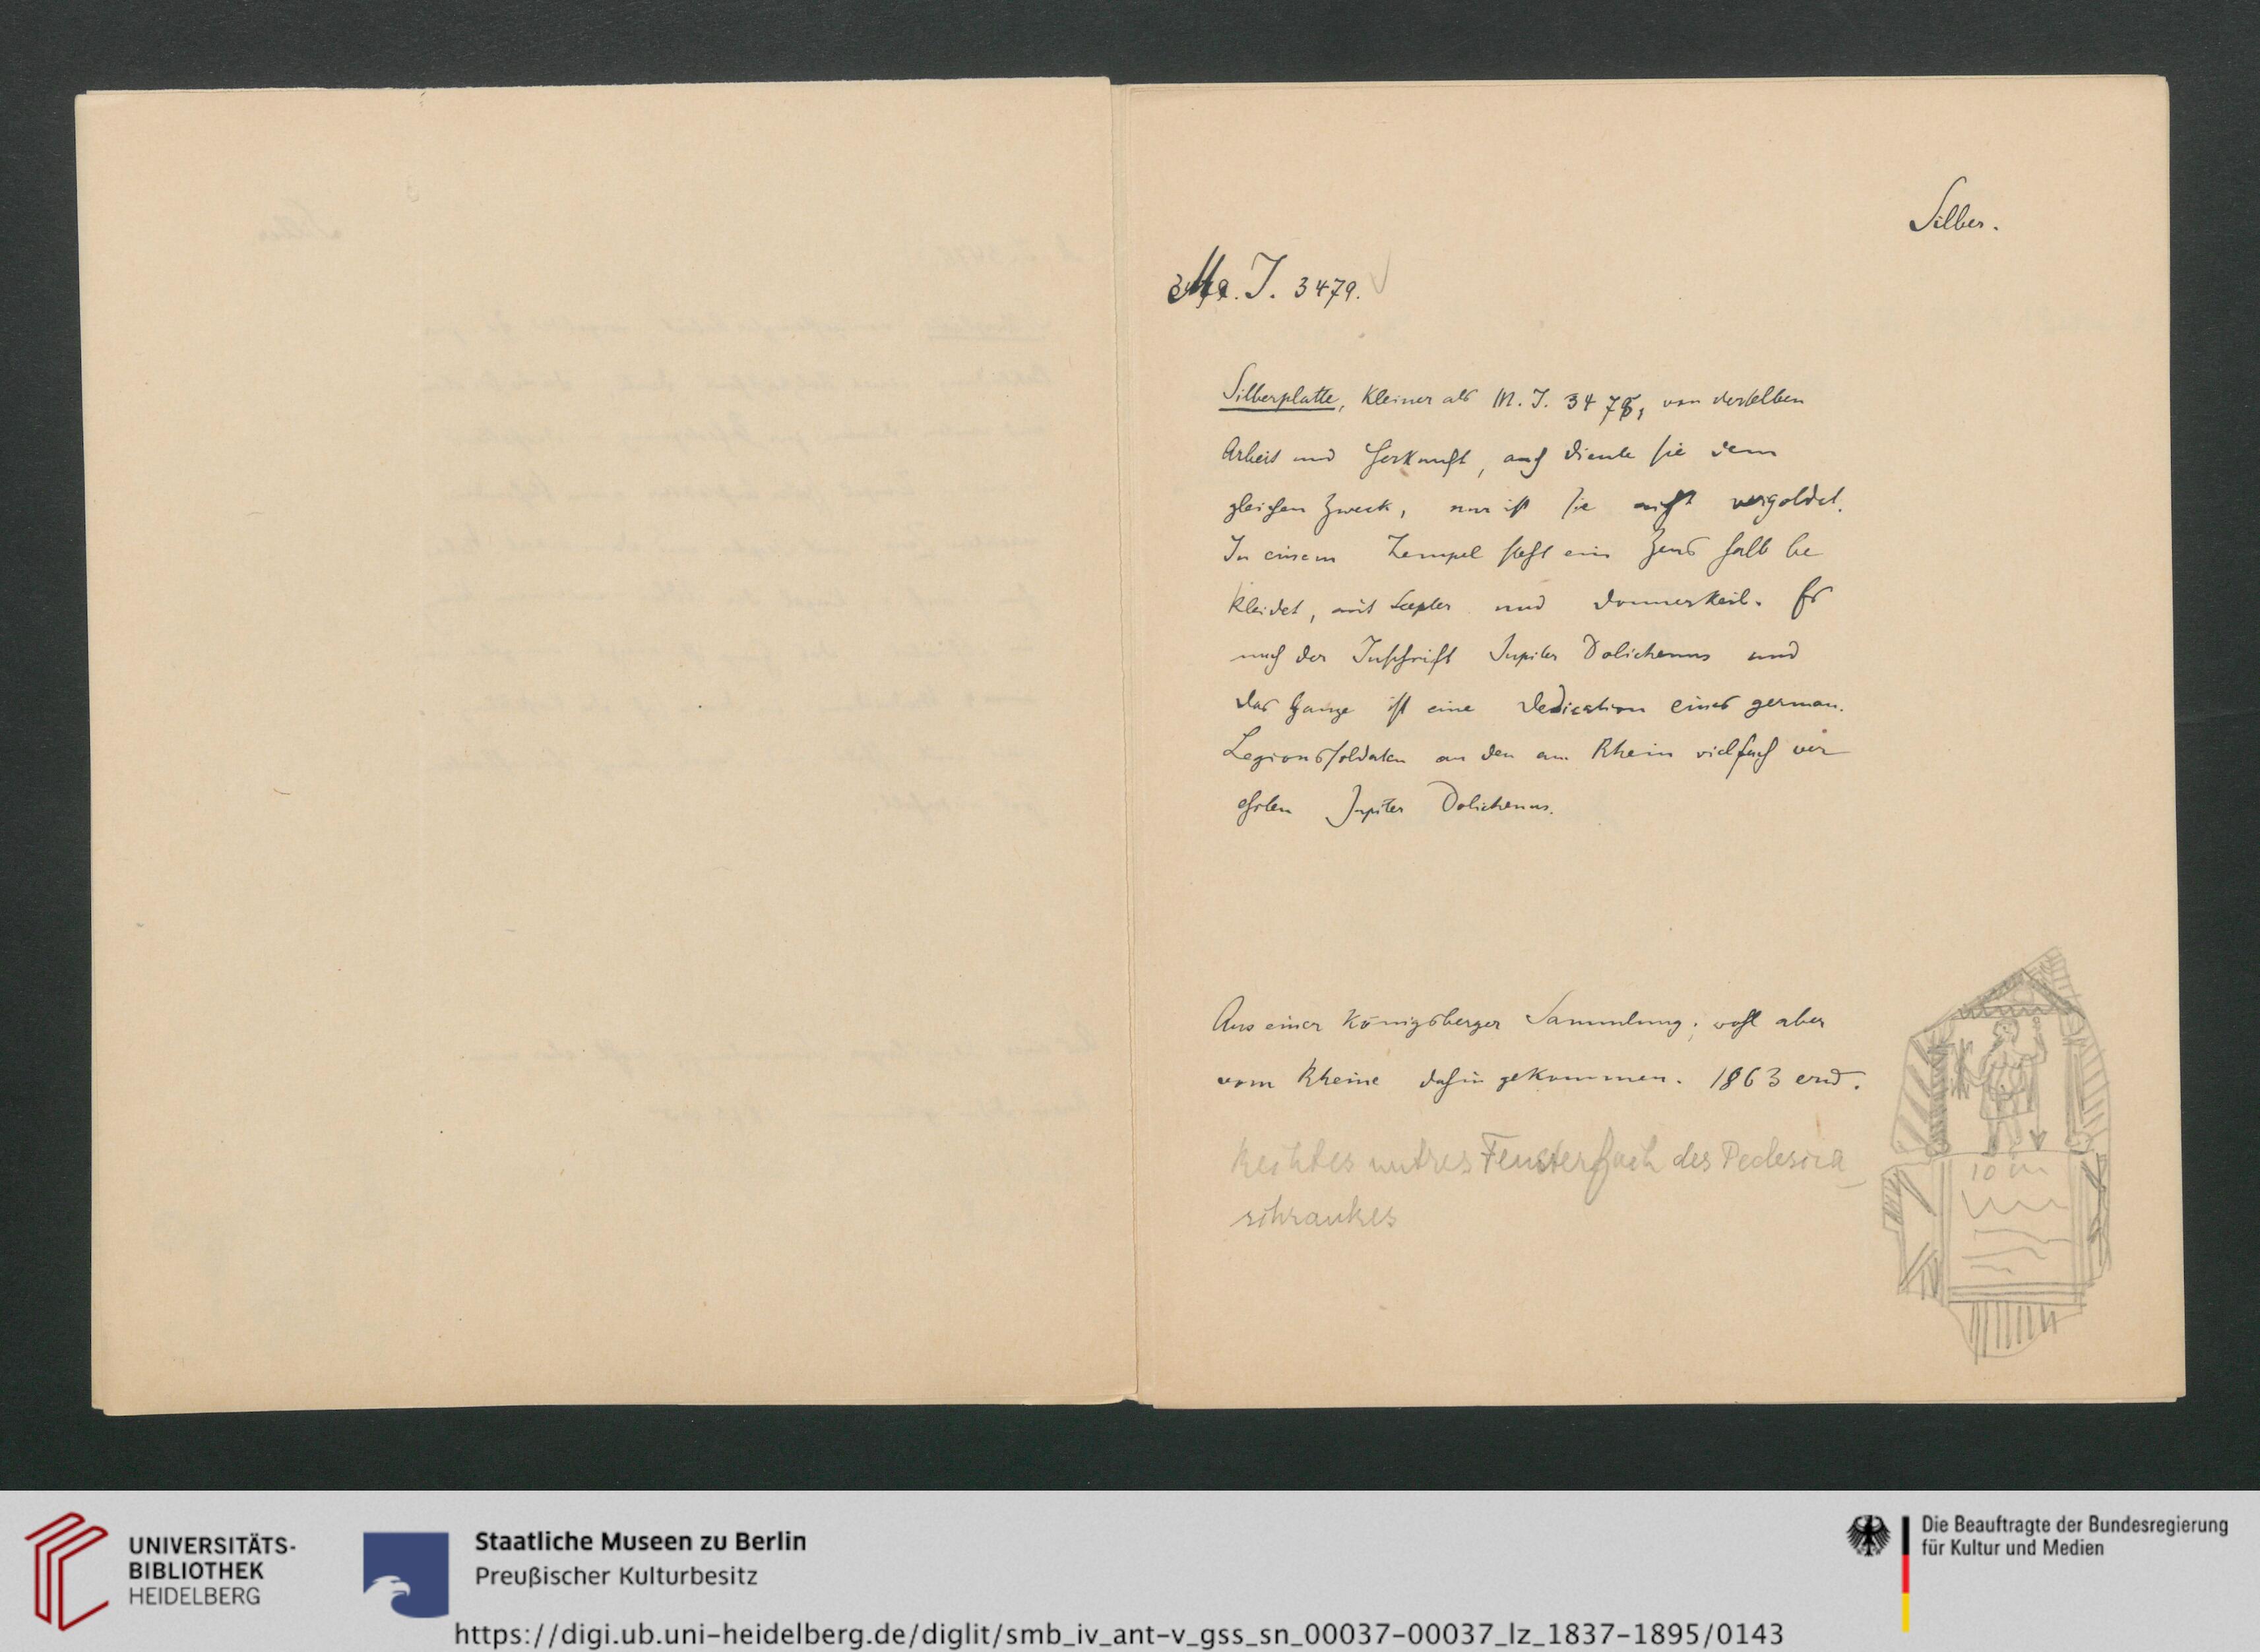 Silber.
M. I. 3479.
Silberplatte, kleiner als M. I. 3478, von derselben
Arbeit und Herkunft, auch diente sie dem
gleichen Zweck, nur ist sie nicht vergoldet.
In einem Tempel steht ein Zeus halb be
kleidet, mit Scepter und Donnerkeil. Es
nach der Inschrift Jupiter Dolichenus und
das Ganze ist eine Dedication eines german.
Legionssoldaten an den am Rhein vielfach ver
ehrten Jupiter Dolichenus.
Aus einer Königsberger Sammlung; wohl aber
vom Rheine dahin gekommen. 1863 erw.
Rechtes untres Fensterfach des
schrankes
UNIVERSITÄTS-
BIBLIOTHEK
HEIDELBERG
Staatliche Museen zu Berlin
Preußischer Kulturbesitz
Die Beauftragte der Bundesregierung
für Kultur und Medien
https://digi.ub.uni-heidelberg.de/diglit/smb_iv_ant-v_gss_sn_00037-00037_lz_1837-1895/0143